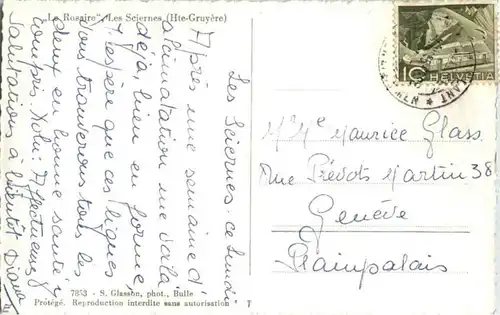 "Le Rosaire", Les Sciernes (Hte-Gruyère)
Les Sciernes - ce lundi
Après une semaine d'
aclimatation me voilà
déja, bien en forme,
J'espère que ces lignes
vous trouverons tous les
deux en bonne santé.
Affectueuses
Salutations à bientôt Diana
10
HELVETIA
Mme Maurice Glass.
Rue Prévots Martin 38
Genève
Plainpalais
7853 - S. Glasson, phot., Bulle
Protégé. Reproduction interdite sans autorisation